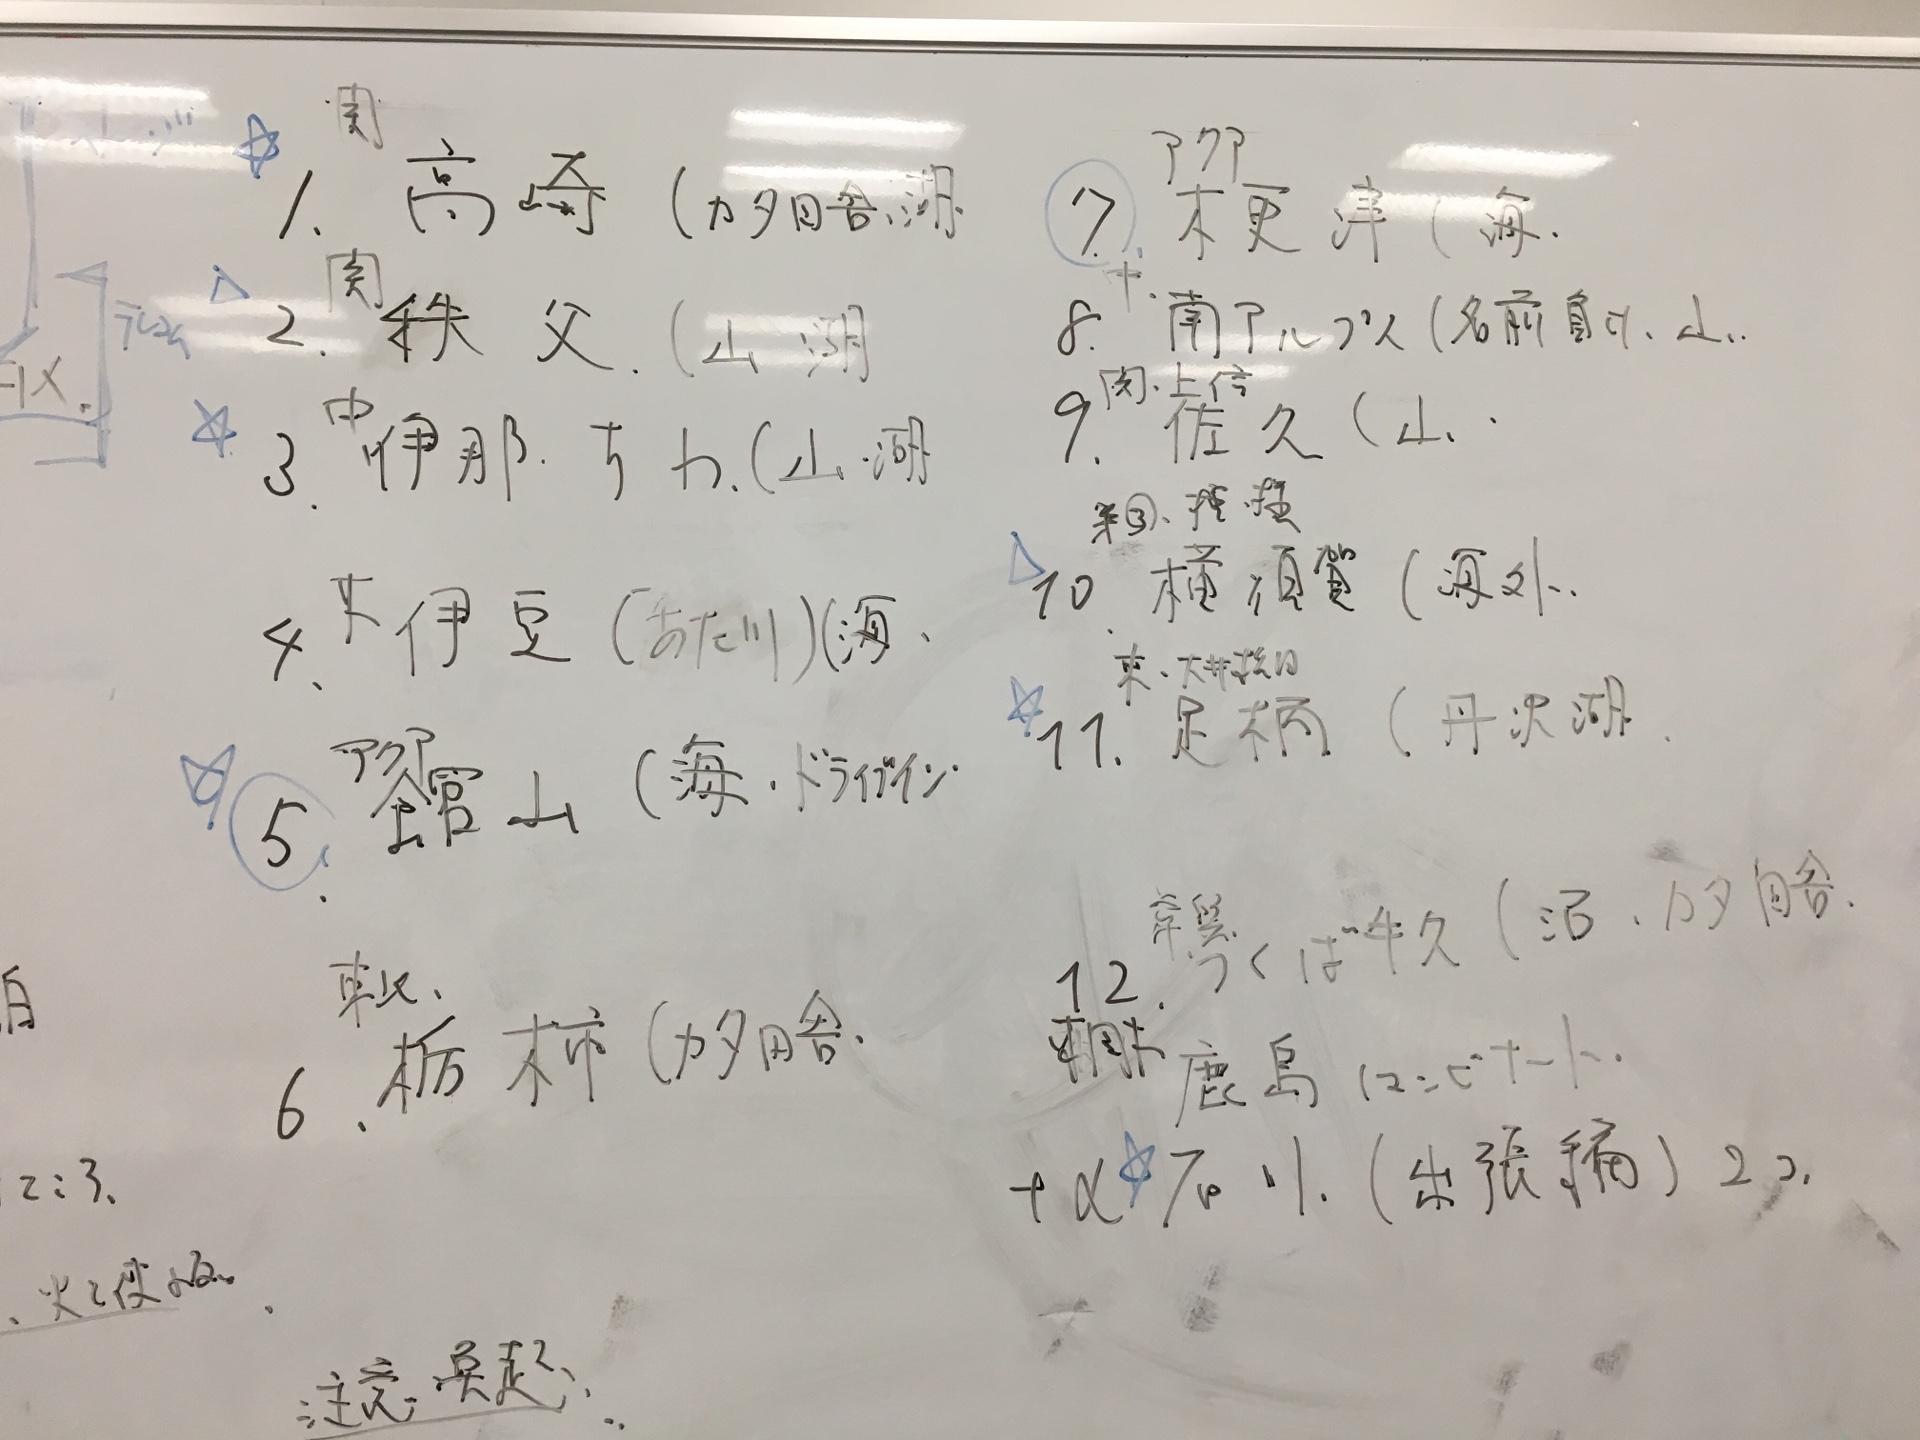 関
1. 高崎 (カタ田舎、湖.
関
2. 秩父. (山 湖
中
3. 伊那. (山.湖
東
4. 伊豆 (あた川)(海.
アクア
5. 館山 (海.ドライブイン.
東北.
6. 栃木市 (カタ田舎.
アクア
7. 木更津 (海.
中.
8. 南アルプス (名前負け、山..
関.上信
9. 佐久 (山..
第③、横.横
10. 横須賀 (海外.
東.大井松田
11. 足柄 (丹沢湖.
常磐.
12. つくば牛久 (沼.カタ田舎.
東関東
鹿島
+α 石川. (出張編) 22.
火を使
注意